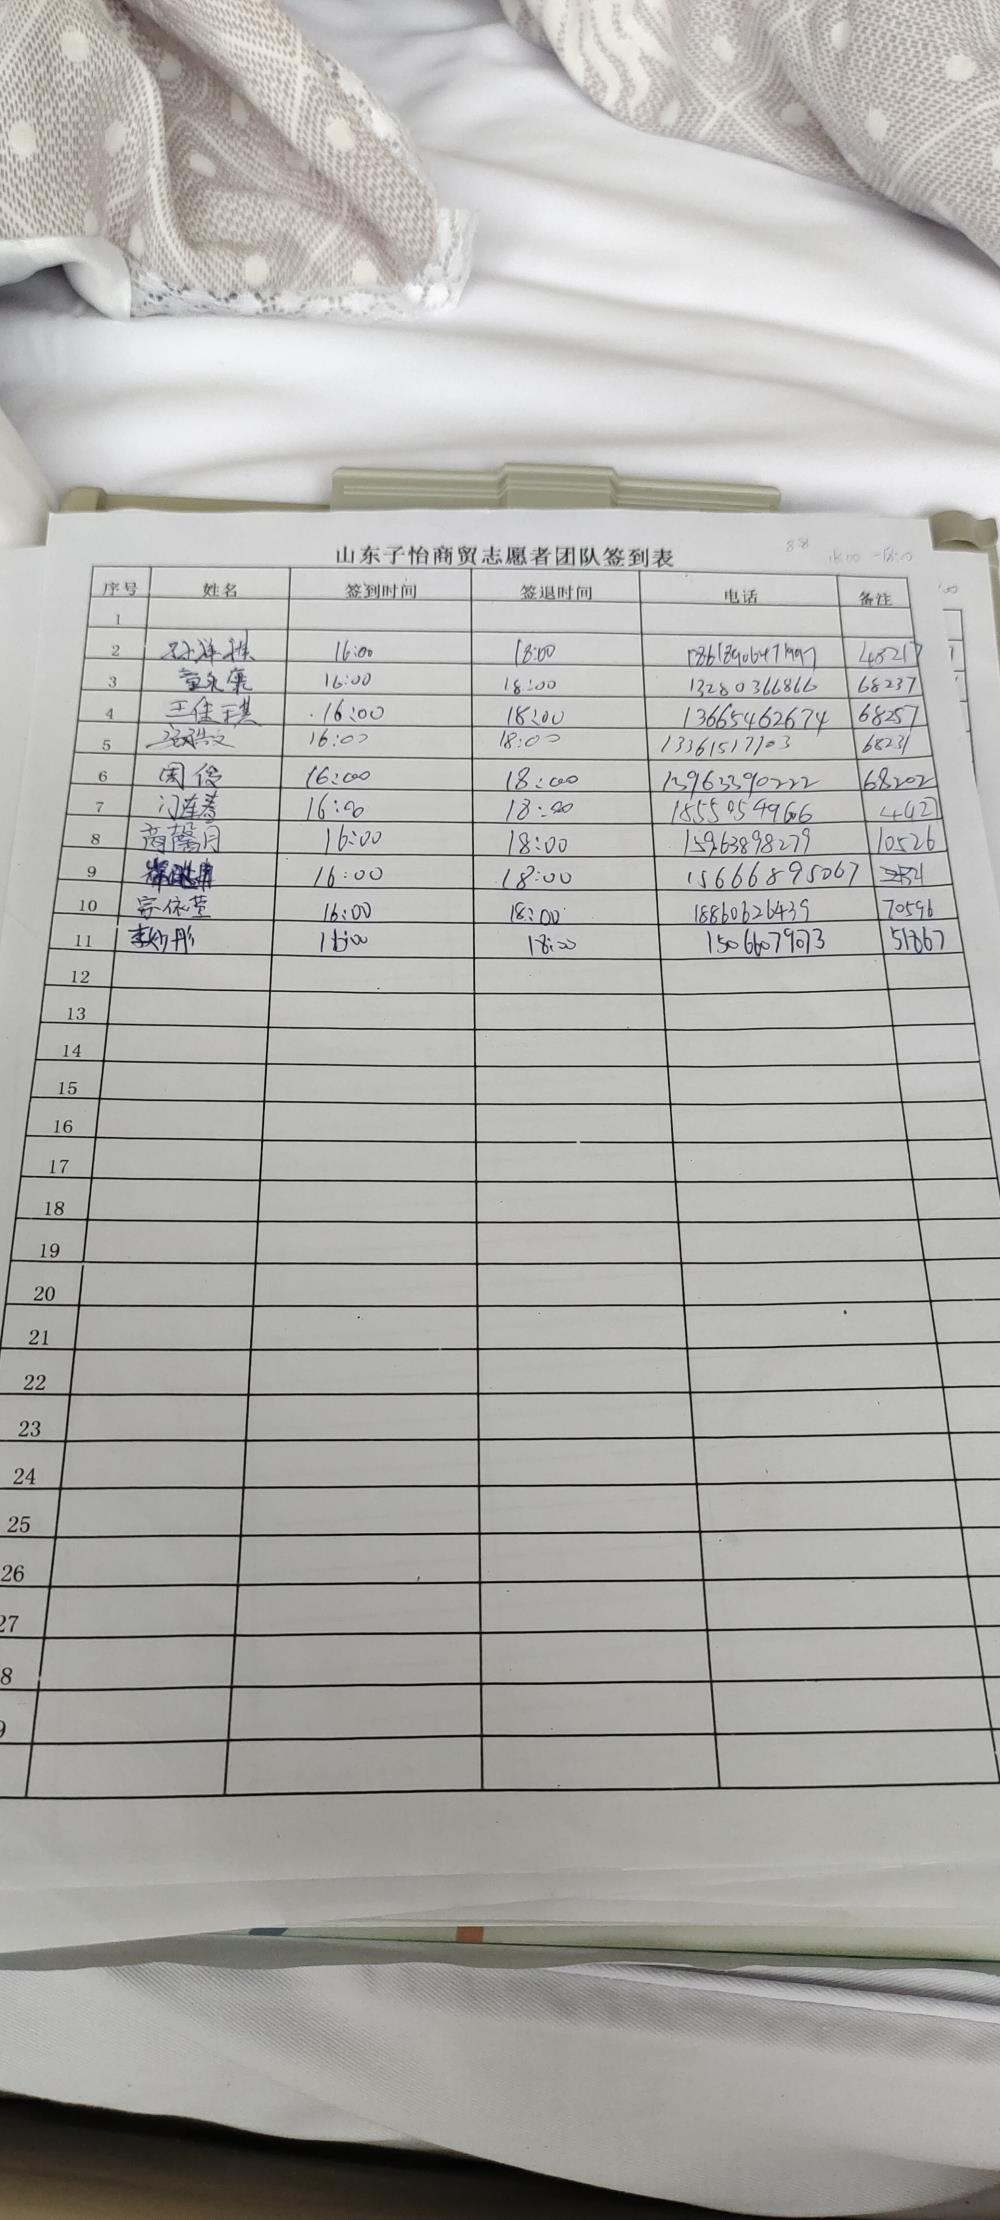 山东子怡商贸志愿者团队签到表
序号 姓名 签到时间 签退时间 电话 备注
1
2 16:00 18:00 48217
3 童泉儒 16:00 18:00 13280366866 68237
4 王佳琪 16:00 18:00 13665462674 68257
5 16:00 18:00 13361517703 68231
6 周俊 16:00 18:00 13963390222 68202
7 闫莲蕾 16:00 18:00 4427
8 商馨月 16:00 18:00 15963898279 10526
9 16:00 18:00 15666895067
10 宗依萱 16:00 18:00 18860626439 70596
11 李妙彤 16:00 18:00 15066079073 51867
12
13
14
15
16
17
18
19
20
21
22
23
24
25
26
27
8
9